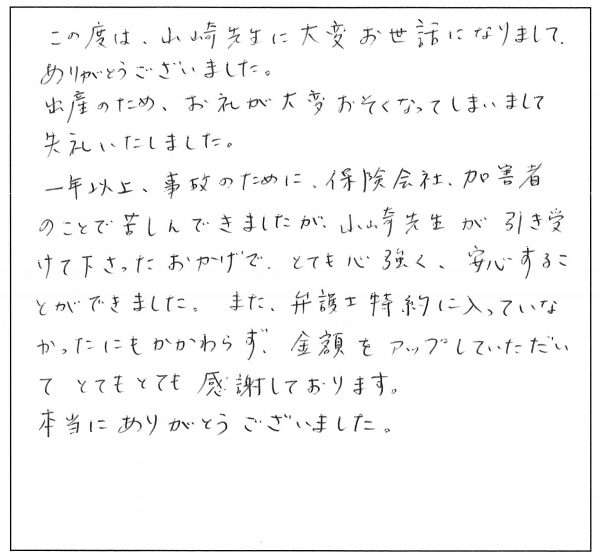 この度は、小﨑先生に大変お世話になりまして、
ありがとうございました。
出産のため、お礼が大変おそくなってしまいまして
失礼いたしました。
一年以上、事故のために、保険会社、加害者
のことで苦しんできましたが、小﨑先生が引き受
けて下さったおかげで、とても心強く、安心するこ
とができました。また、弁護士特約に入っていな
かったにもかかわらず、金額をアップしていただい
てとてもとても感謝しております。
本当にありがとうございました。